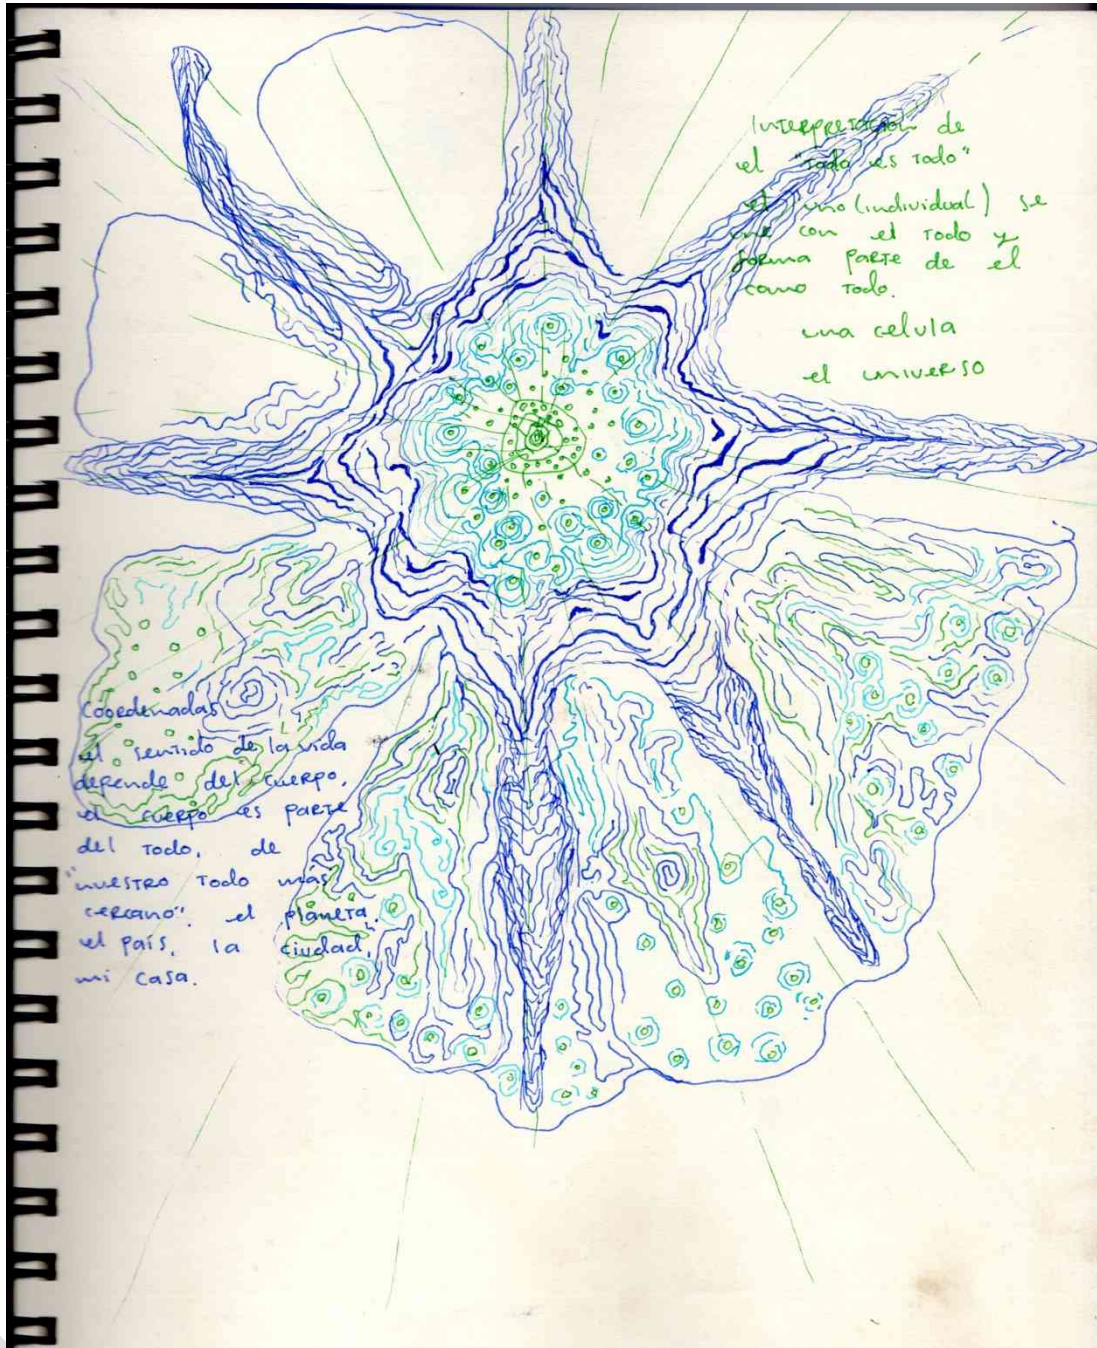 Interpretación de
el "todo es todo"
el uno (individual) se
une con el todo y
forma parte de el
como todo.
una celula
el universo
Coordenadas
el sentido de la vida
depende del cuerpo,
el cuerpo es parte
del todo, de
"nuestro todo mas
cercano". el planeta,
el país, la ciudad,
mi casa.